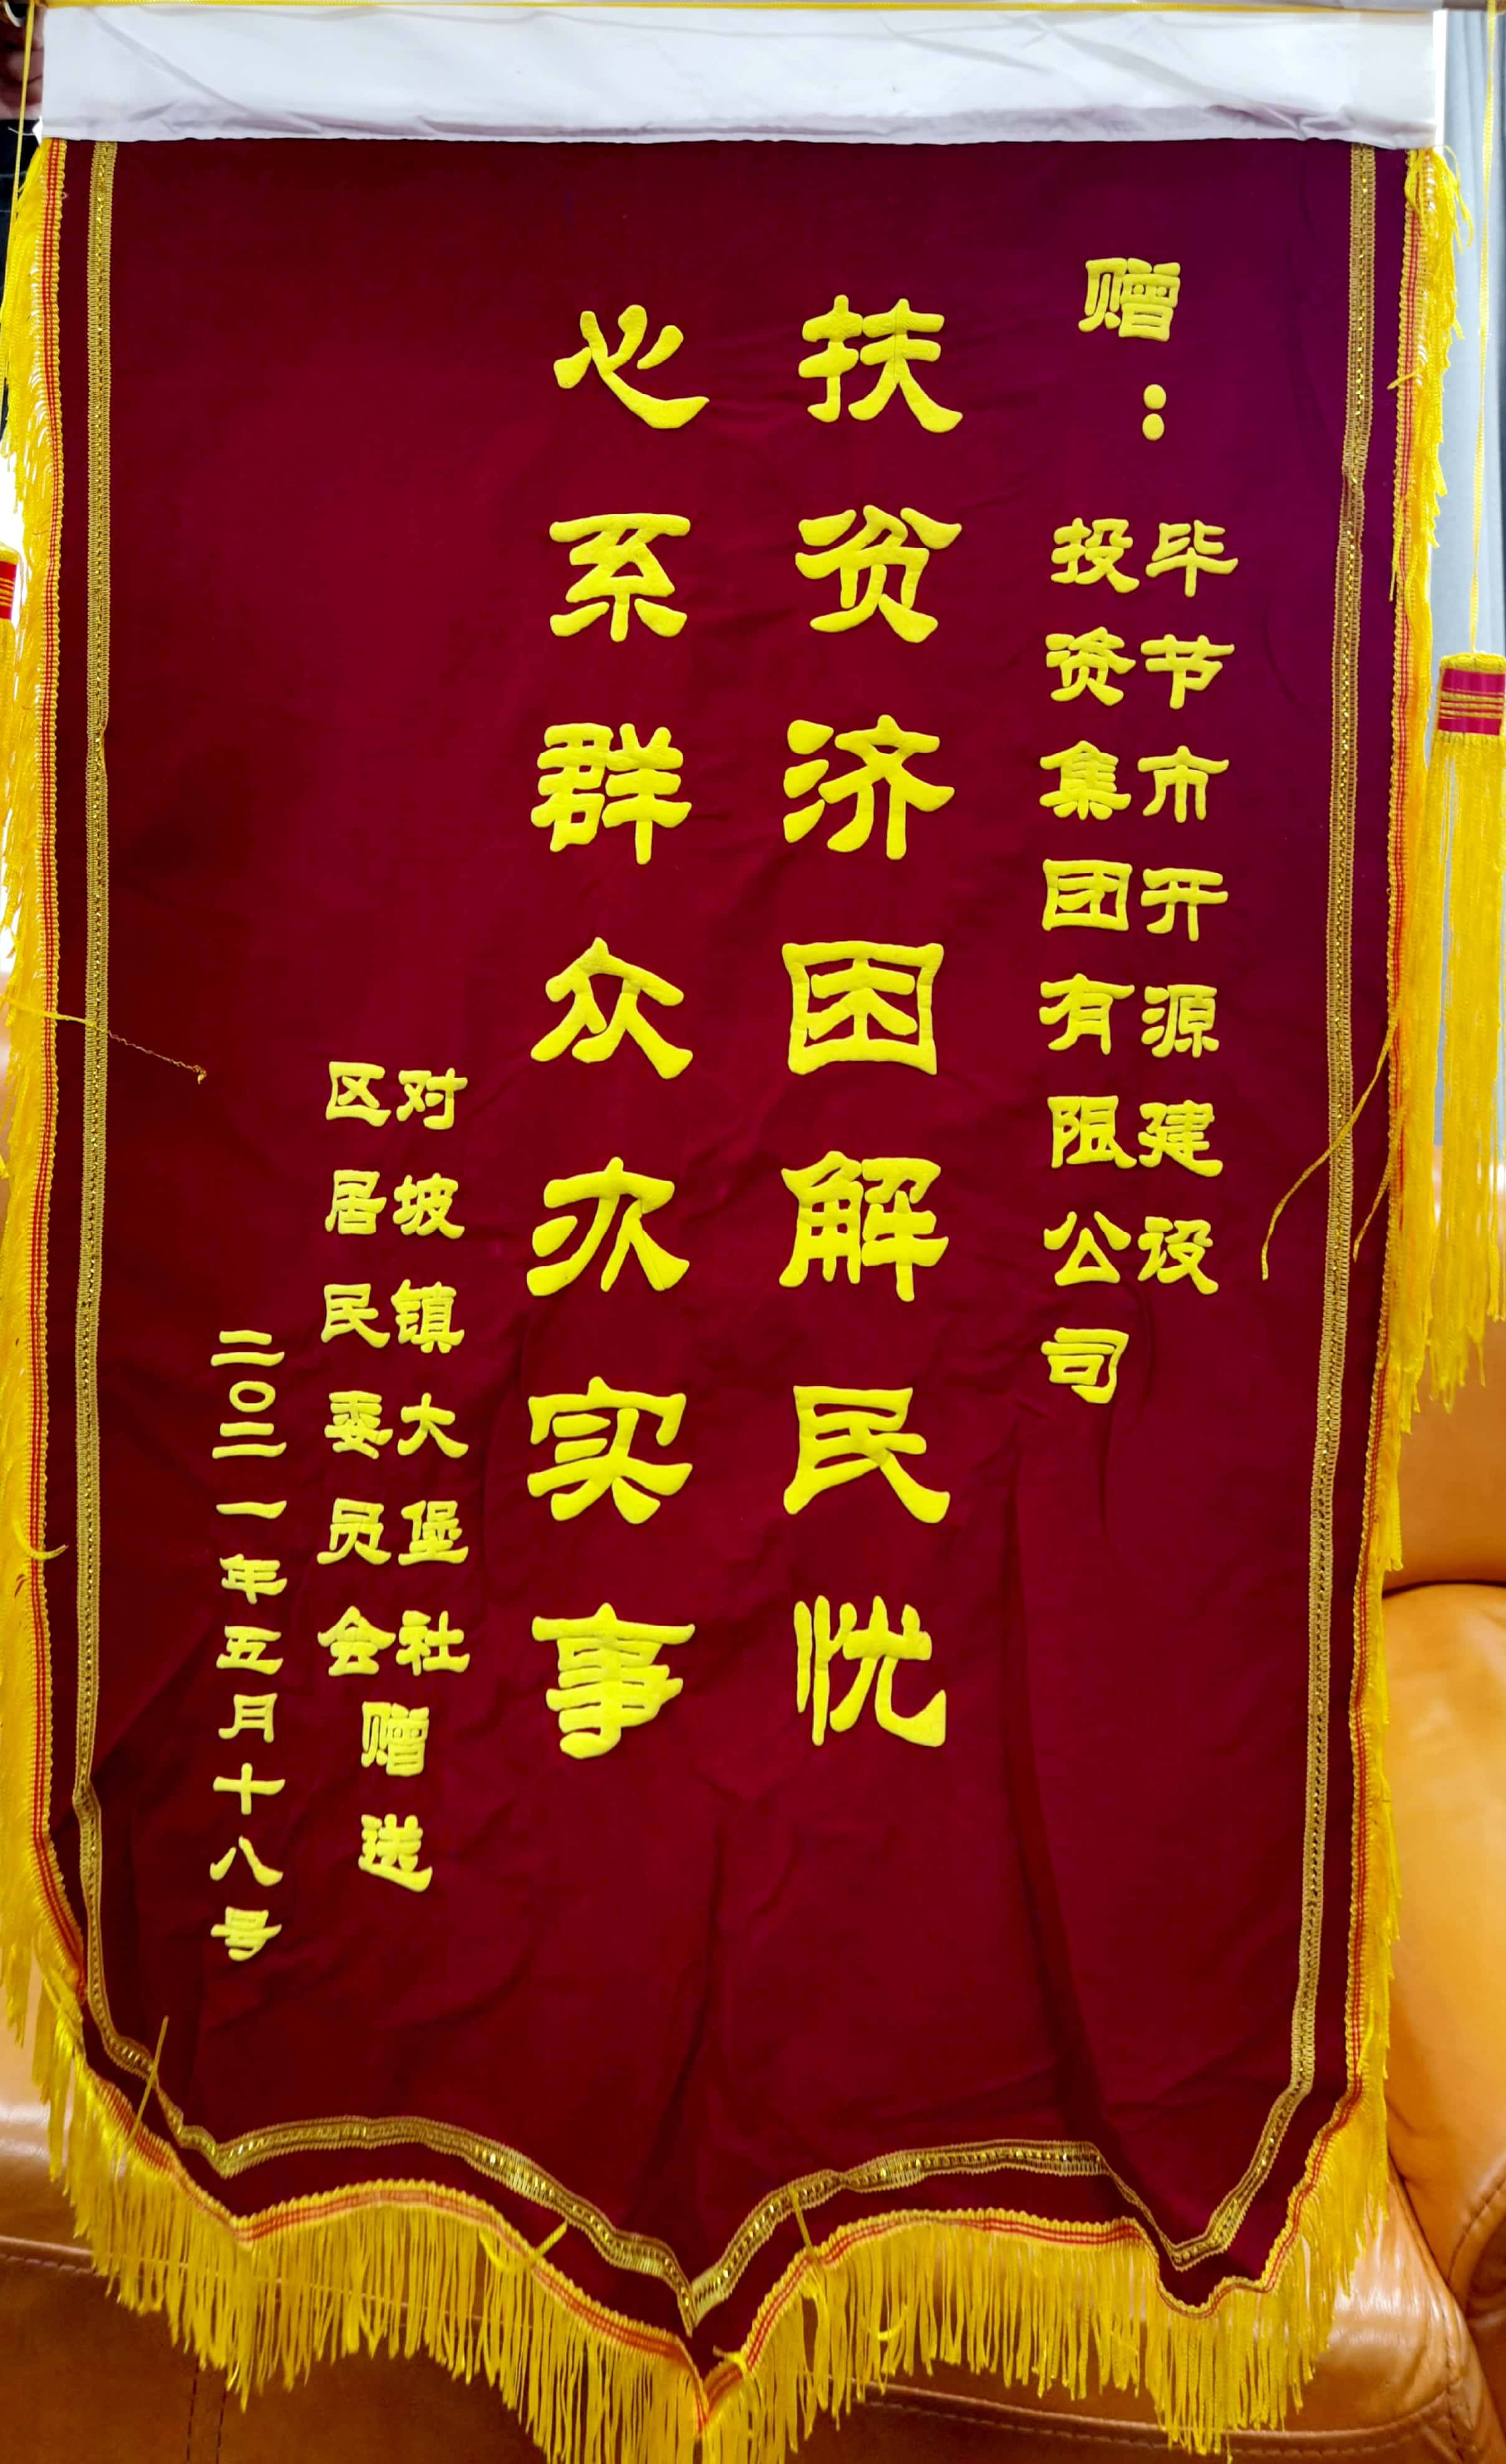 赠：
毕节市开源建设
投资集团有限公司
扶贫济困解民忧
心系群众办实事
对坡镇大堡社
区居民委员会
赠送
二〇二一年五月十八号